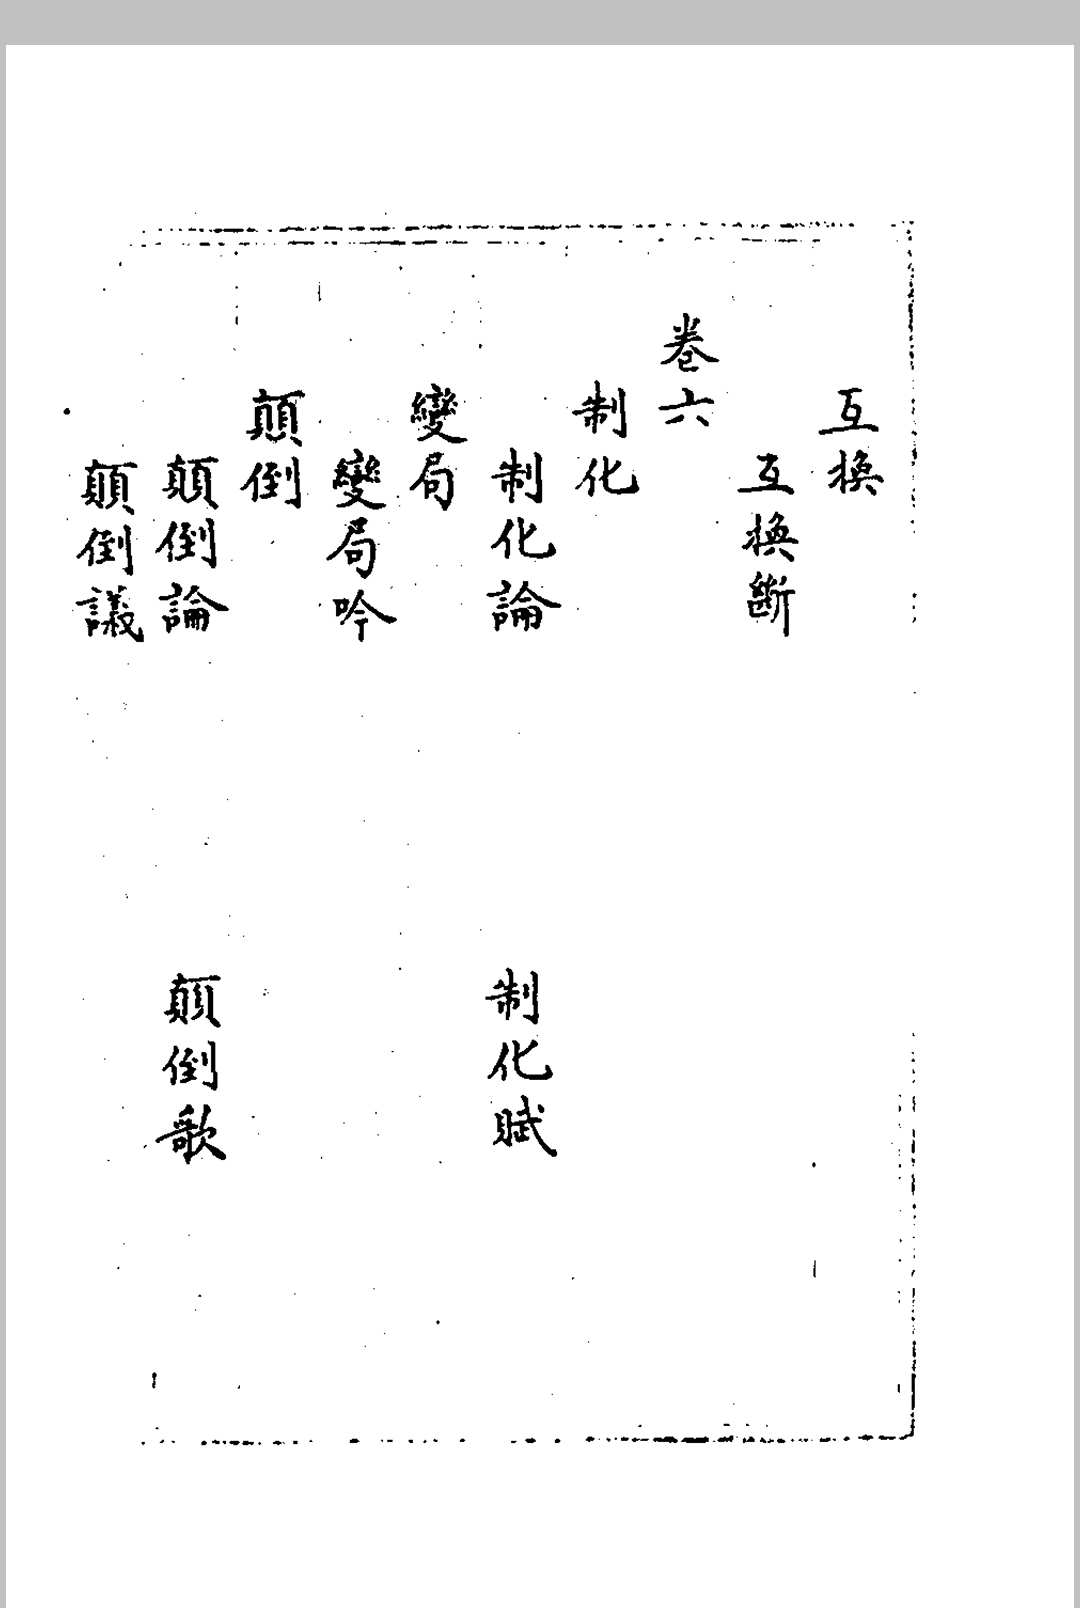 互換
互換斷
卷六
制化
制化論
制化賦
變局
變局吟
顛倒
顛倒論
顛倒歌
顛倒議